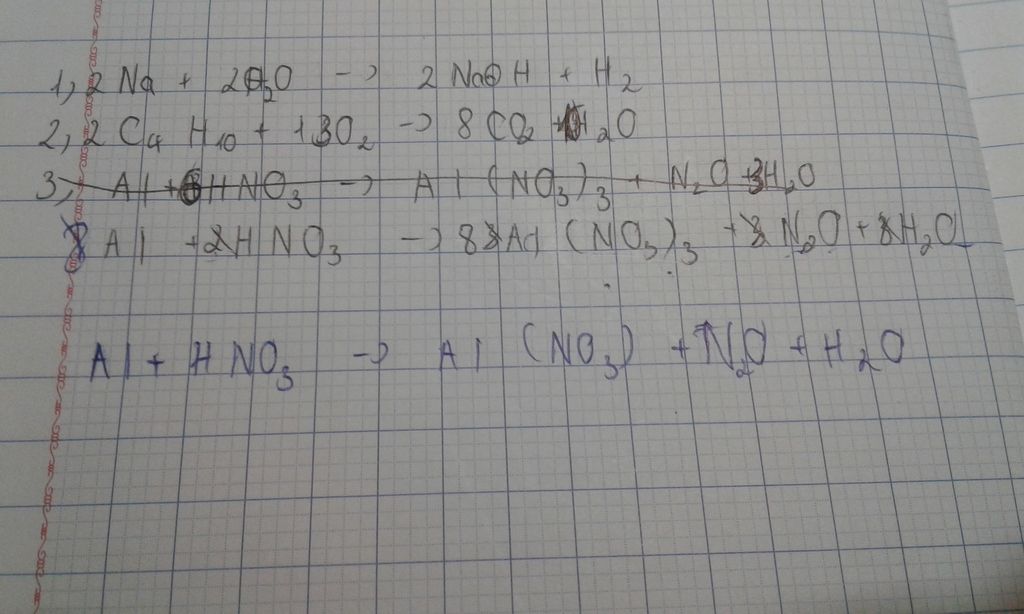 1, 2 Na + 2H₂O → 2 NaOH + H₂
2, 2 C₄ H₁₀ + 13O₂ → 8 CO₂ + H₂O
3, Al + 6HNO₃ → Al (NO₃)₃ + N₂O 3H₂O
8 Al + HNO₃ → 8 Al (NO₃)₃ + N₂O + H₂O
Al + HNO₃ → Al (NO₃) + N₂O + H₂O